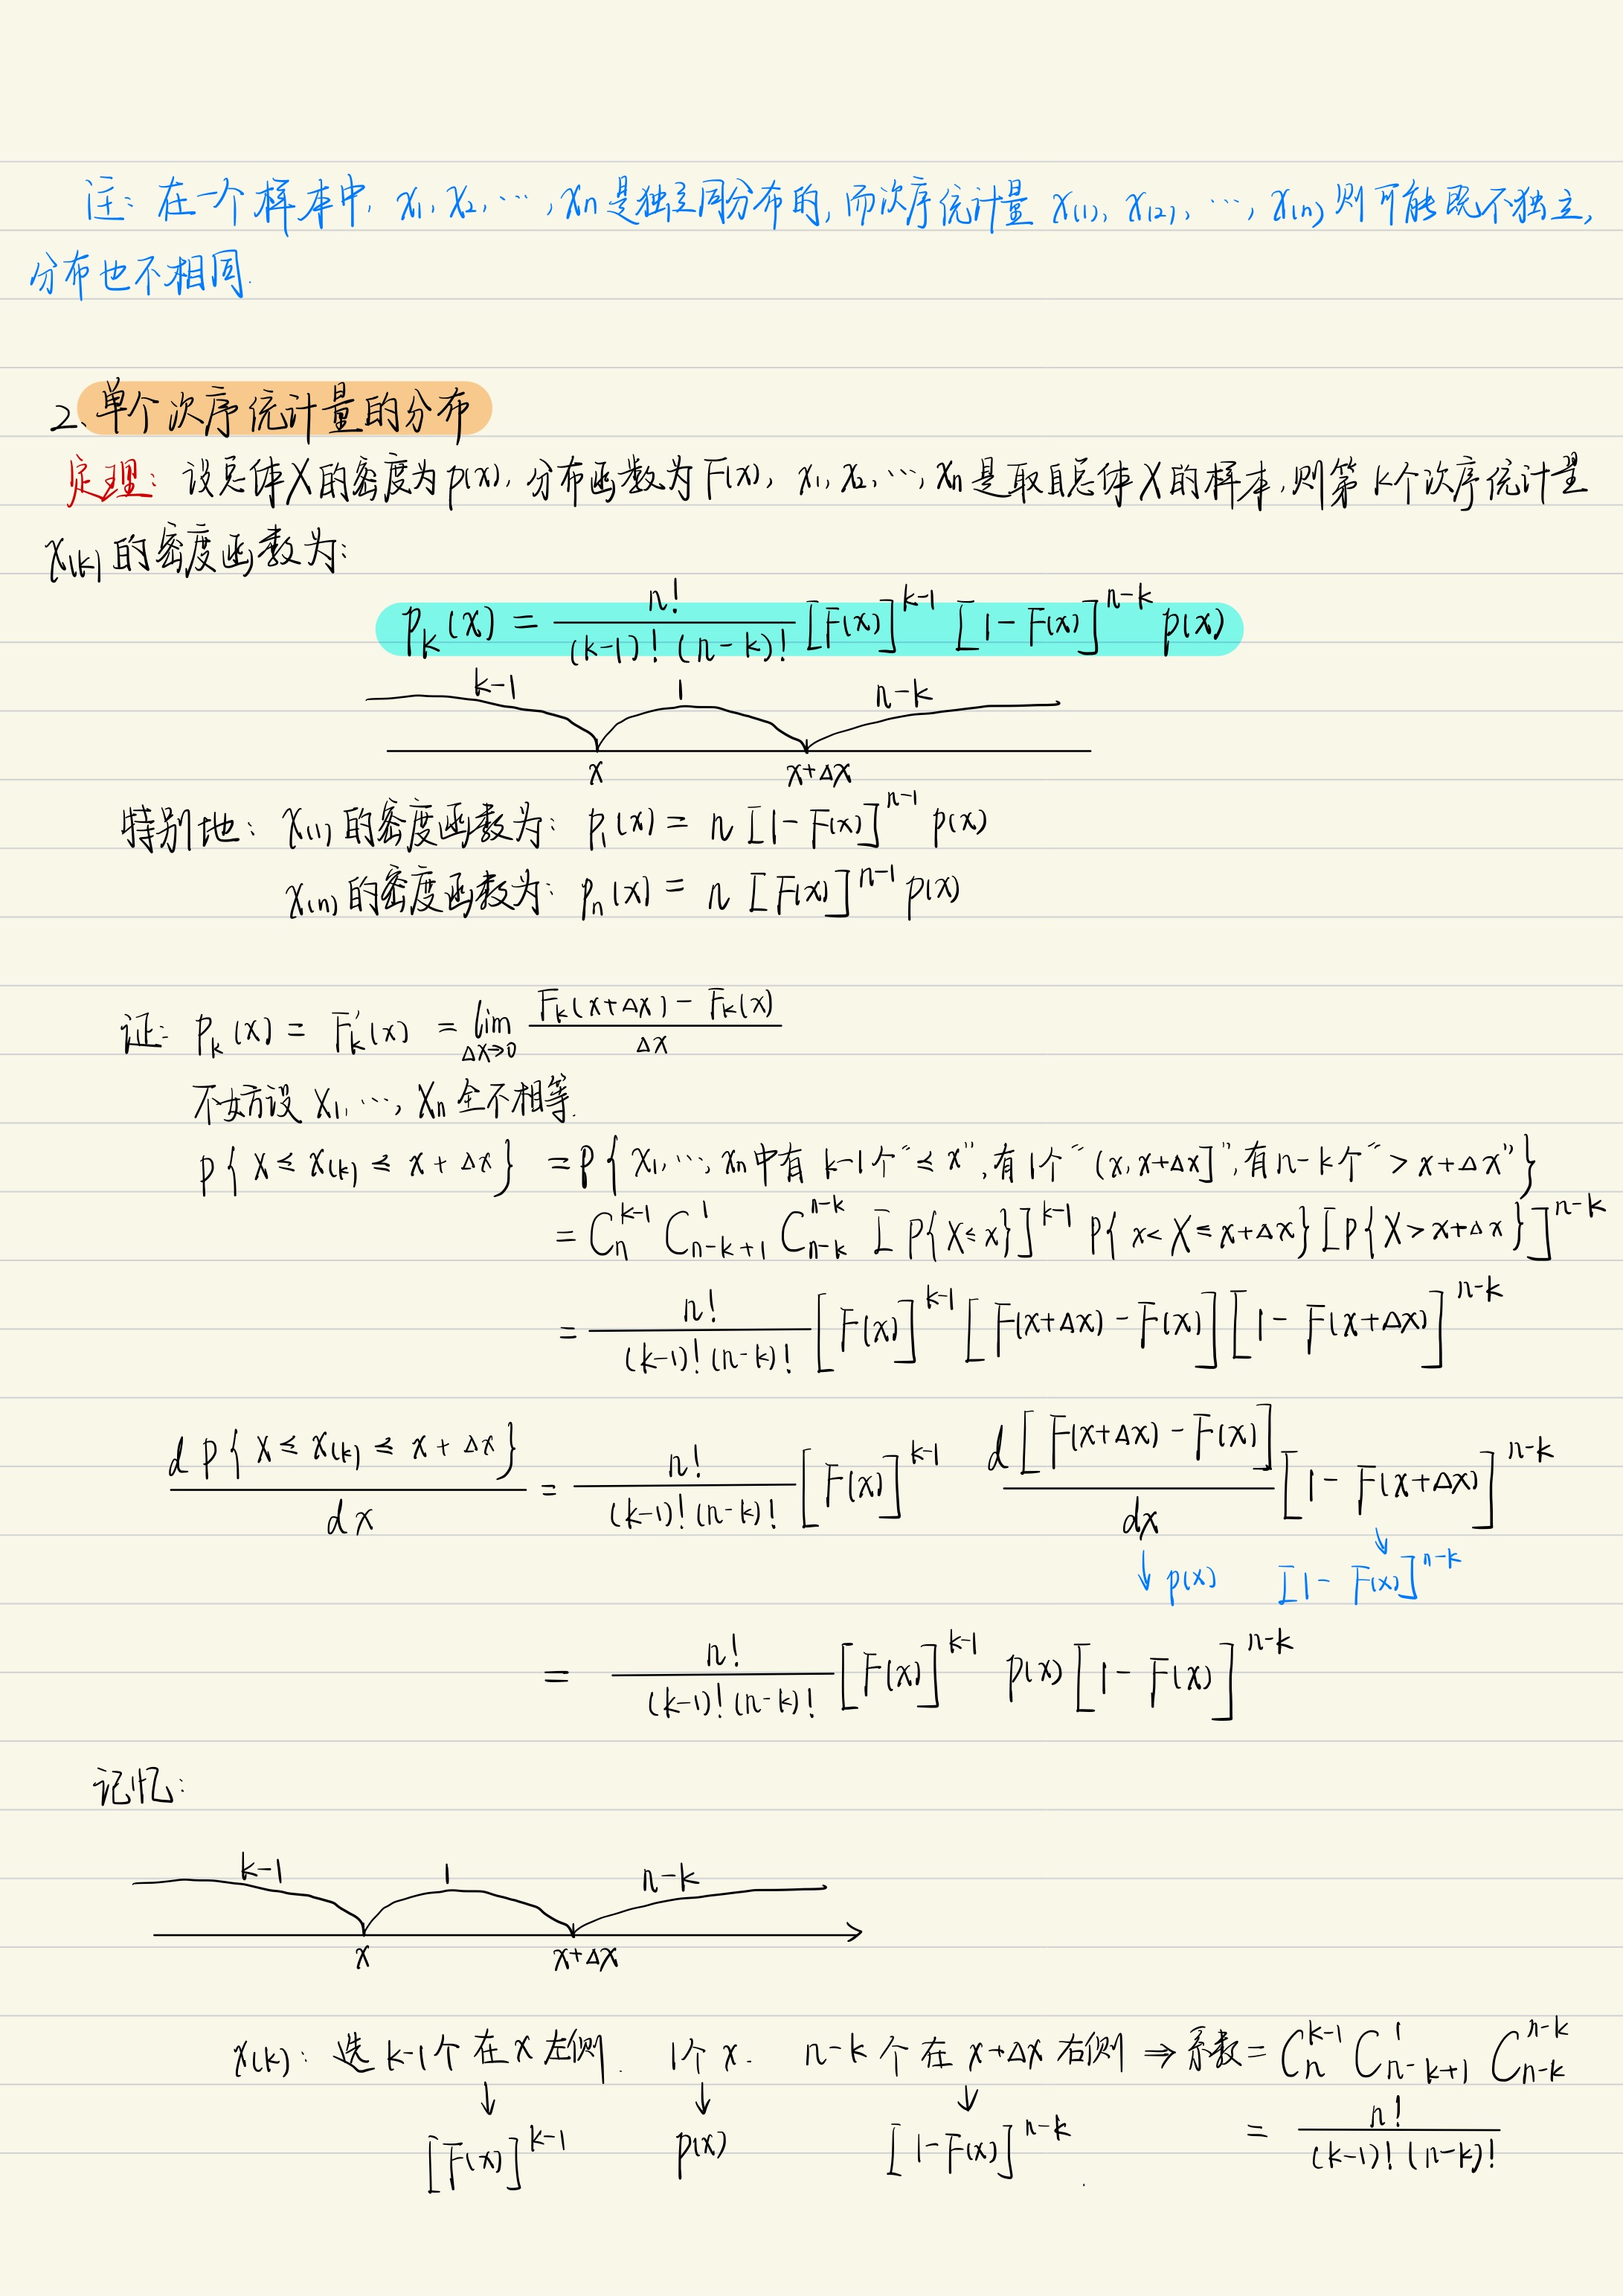 注: 在一个样本中, x₁, x₂, ⋯, xₙ 是独立同分布的, 而次序统计量 x₍₁₎, x₍₂₎, ⋯, x₍ₙ₎ 则可能既不独立,
分布也不相同.
2. 单个次序统计量的分布
定理: 设总体X的密度为p(x), 分布函数为F(x), x₁, x₂, ⋯, xₙ 是取自总体X的样本, 则第k个次序统计量
x₍ₖ₎ 的密度函数为:
pₖ(x) = n!/((k-1)!(n-k)!) [F(x)]^(k-1) [1-F(x)]^(n-k) p(x)
k-1 1 n-k
x x+Δx
特别地: x₍₁₎ 的密度函数为: p₁(x) = n [1-F(x)]^(n-1) p(x)
x₍ₙ₎ 的密度函数为: pₙ(x) = n [F(x)]^(n-1) p(x)
证: pₖ(x) = Fₖ'(x) = lim_(Δx→0) (Fₖ(x+Δx) - Fₖ(x))/Δx
不妨设 x₁, ⋯, xₙ 全不相等.
P{x ≤ x₍ₖ₎ ≤ x+Δx} = P{x₁, ⋯, xₙ中有 k-1个"≤x", 有1个"(x, x+Δx]", 有n-k个">x+Δx"}
= C_n^(k-1) C_(n-k+1)^1 C_(n-k)^(n-k) [P{X≤x}]^(k-1) P{x<X≤x+Δx} [P{X>x+Δx}]^(n-k)
= n!/((k-1)!(n-k)!) [F(x)]^(k-1) [F(x+Δx) - F(x)] [1 - F(x+Δx)]^(n-k)
d P{x ≤ x₍ₖ₎ ≤ x+Δx}/dx = n!/((k-1)!(n-k)!) [F(x)]^(k-1) d[F(x+Δx) - F(x)]/dx [1 - F(x+Δx)]^(n-k)
↓ p(x) ↓ [1 - F(x)]^(n-k)
= n!/((k-1)!(n-k)!) [F(x)]^(k-1) p(x) [1 - F(x)]^(n-k)
记忆:
k-1 1 n-k
x x+Δx
x₍ₖ₎: 选 k-1个 在 x 左侧. 1个 x. n-k 个 在 x+Δx 右侧 ⇒ 系数 = C_n^(k-1) C_(n-k+1)^1 C_(n-k)^(n-k)
↓ ↓ ↓
[F(x)]^(k-1) p(x) [1-F(x)]^(n-k). = n!/((k-1)!(n-k)!)